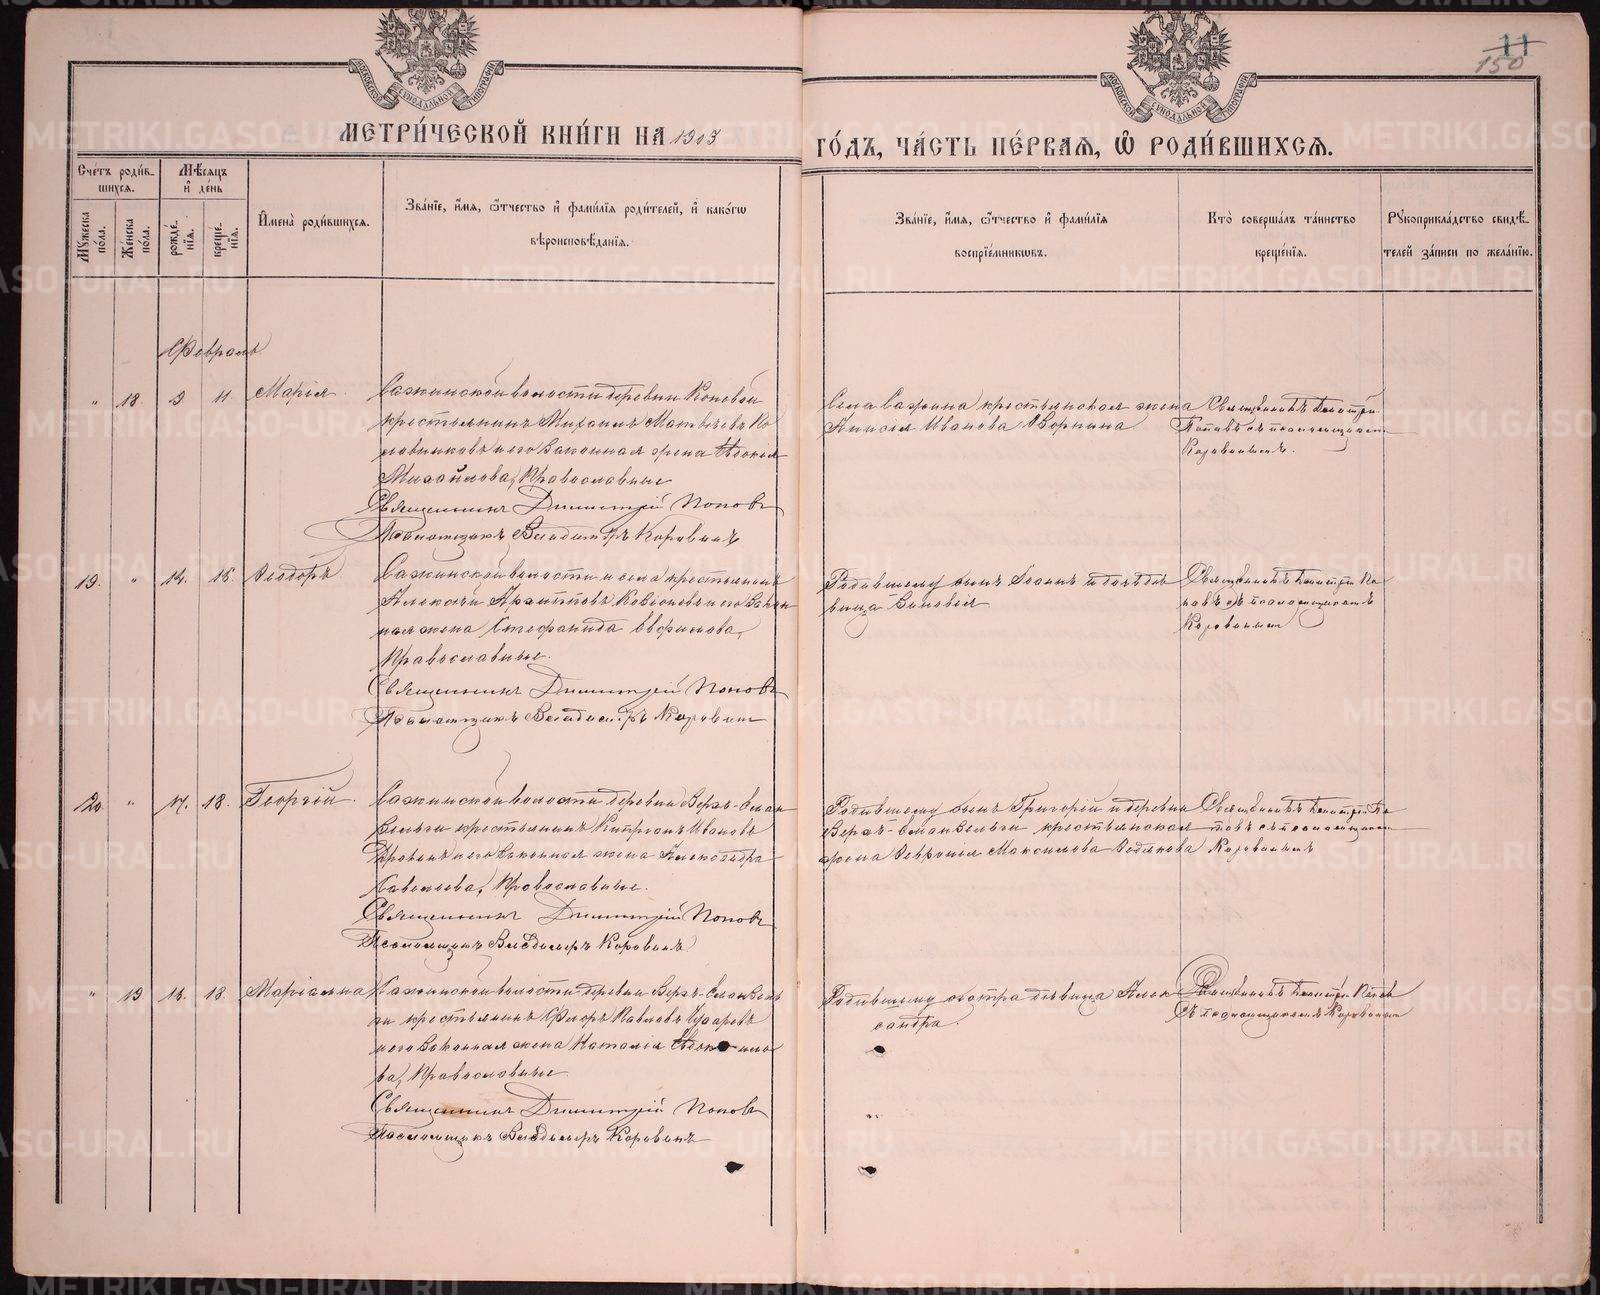 11
150
МОСКОВСКОЙ СѴНОДАЛЬНОЙ ТИПОГРАФІИ
МОСКОВСКОЙ СѴНОДАЛЬНОЙ ТИПОГРАФІИ
МЕТРИ́ЧЕСКОЙ КНИ́ГИ НА 1903
ГО́ДЪ, ЧА́СТЬ ПЕ́РВАЯ, Ѽ РОДИ́ВШИХСЯ.
Сче́тъ роди́в-
шихся.
Мѣ́сяцъ
и҆ де́нь
Му́жеска
по́ла.
Же́нска
по́ла.
рожде́-
нїя.
креще́-
нїя.
И҆мена̀ роди́вшихся.
Зва́нїе, и҆́мя, ѻ҆́тчество и҆ фами́лїя роди́телей, и҆ како́гѡ
вѣроисповѣ́данїя.
Зва́нїе, и҆́мя, ѻ҆́тчество и҆ фами́лїя
воспрїе́мникѡвъ.
Кто̀ соверша́лъ та́инство
креще́нїя.
Рукоприкла́дство свидѣ́-
телей за́писи по жела́нїю.
Февраль
" 18 9 11 Марія
Сажинской волости деревни Коневой
крестьянинъ Михаилъ Матвеевъ Ко
новниковъ и его законная жена Евдокия
Михайлова, Православные
Священникъ Димитрій Поповъ
Псаломщикъ Владимиръ Коровинъ
Села Сажина крестьянская жена
Анисія Иванова Ворнина
Священникъ Димитрій
Поповъ съ псаломщикомъ
Коровинымъ.
19. " 14. 15. Феодоръ
Сажинской волости и села крестьянинъ
Алексѣй Архиповъ и его закон
ная жена Стефанида Евфимова,
Православные.
Священникъ Димитрій Поповъ
Псаломщикъ Владимиръ Коровинъ
Родившему сынъ Іоаннъ и дочь дѣ
вица Зиновія
Священникъ Димитрій По
повъ съ псаломщикомъ
Коровинымъ
20 " 17. 18. Георгій.
Сажинской волости деревни Верхъ-
крестьянинъ Кипріанъ Ивановъ
и его законная жена Александра
Савельева, Православные.
Священникъ Димитрій Поповъ
Псаломщикъ Владимиръ Коровинъ
Родившему сынъ Григорій и деревни
Верхъ- крестьянская
жена Февронія Максимова
Священникъ Димитрій По
повъ съ псаломщикомъ
Коровинымъ
" 19 18. Маріамна
Сажинской волости деревни Верхъ-
крестьянинъ Флоръ Павловъ
и его законная жена Наталія
ва, Православные
Священникъ Димитрій Поповъ
Псаломщикъ Владимиръ Коровинъ
Родившему сестра девица Алек
сандра.
Священникъ Димитрій Поповъ
съ псаломщикомъ Коровинымъ
METRIKI.GASO-URAL.RU